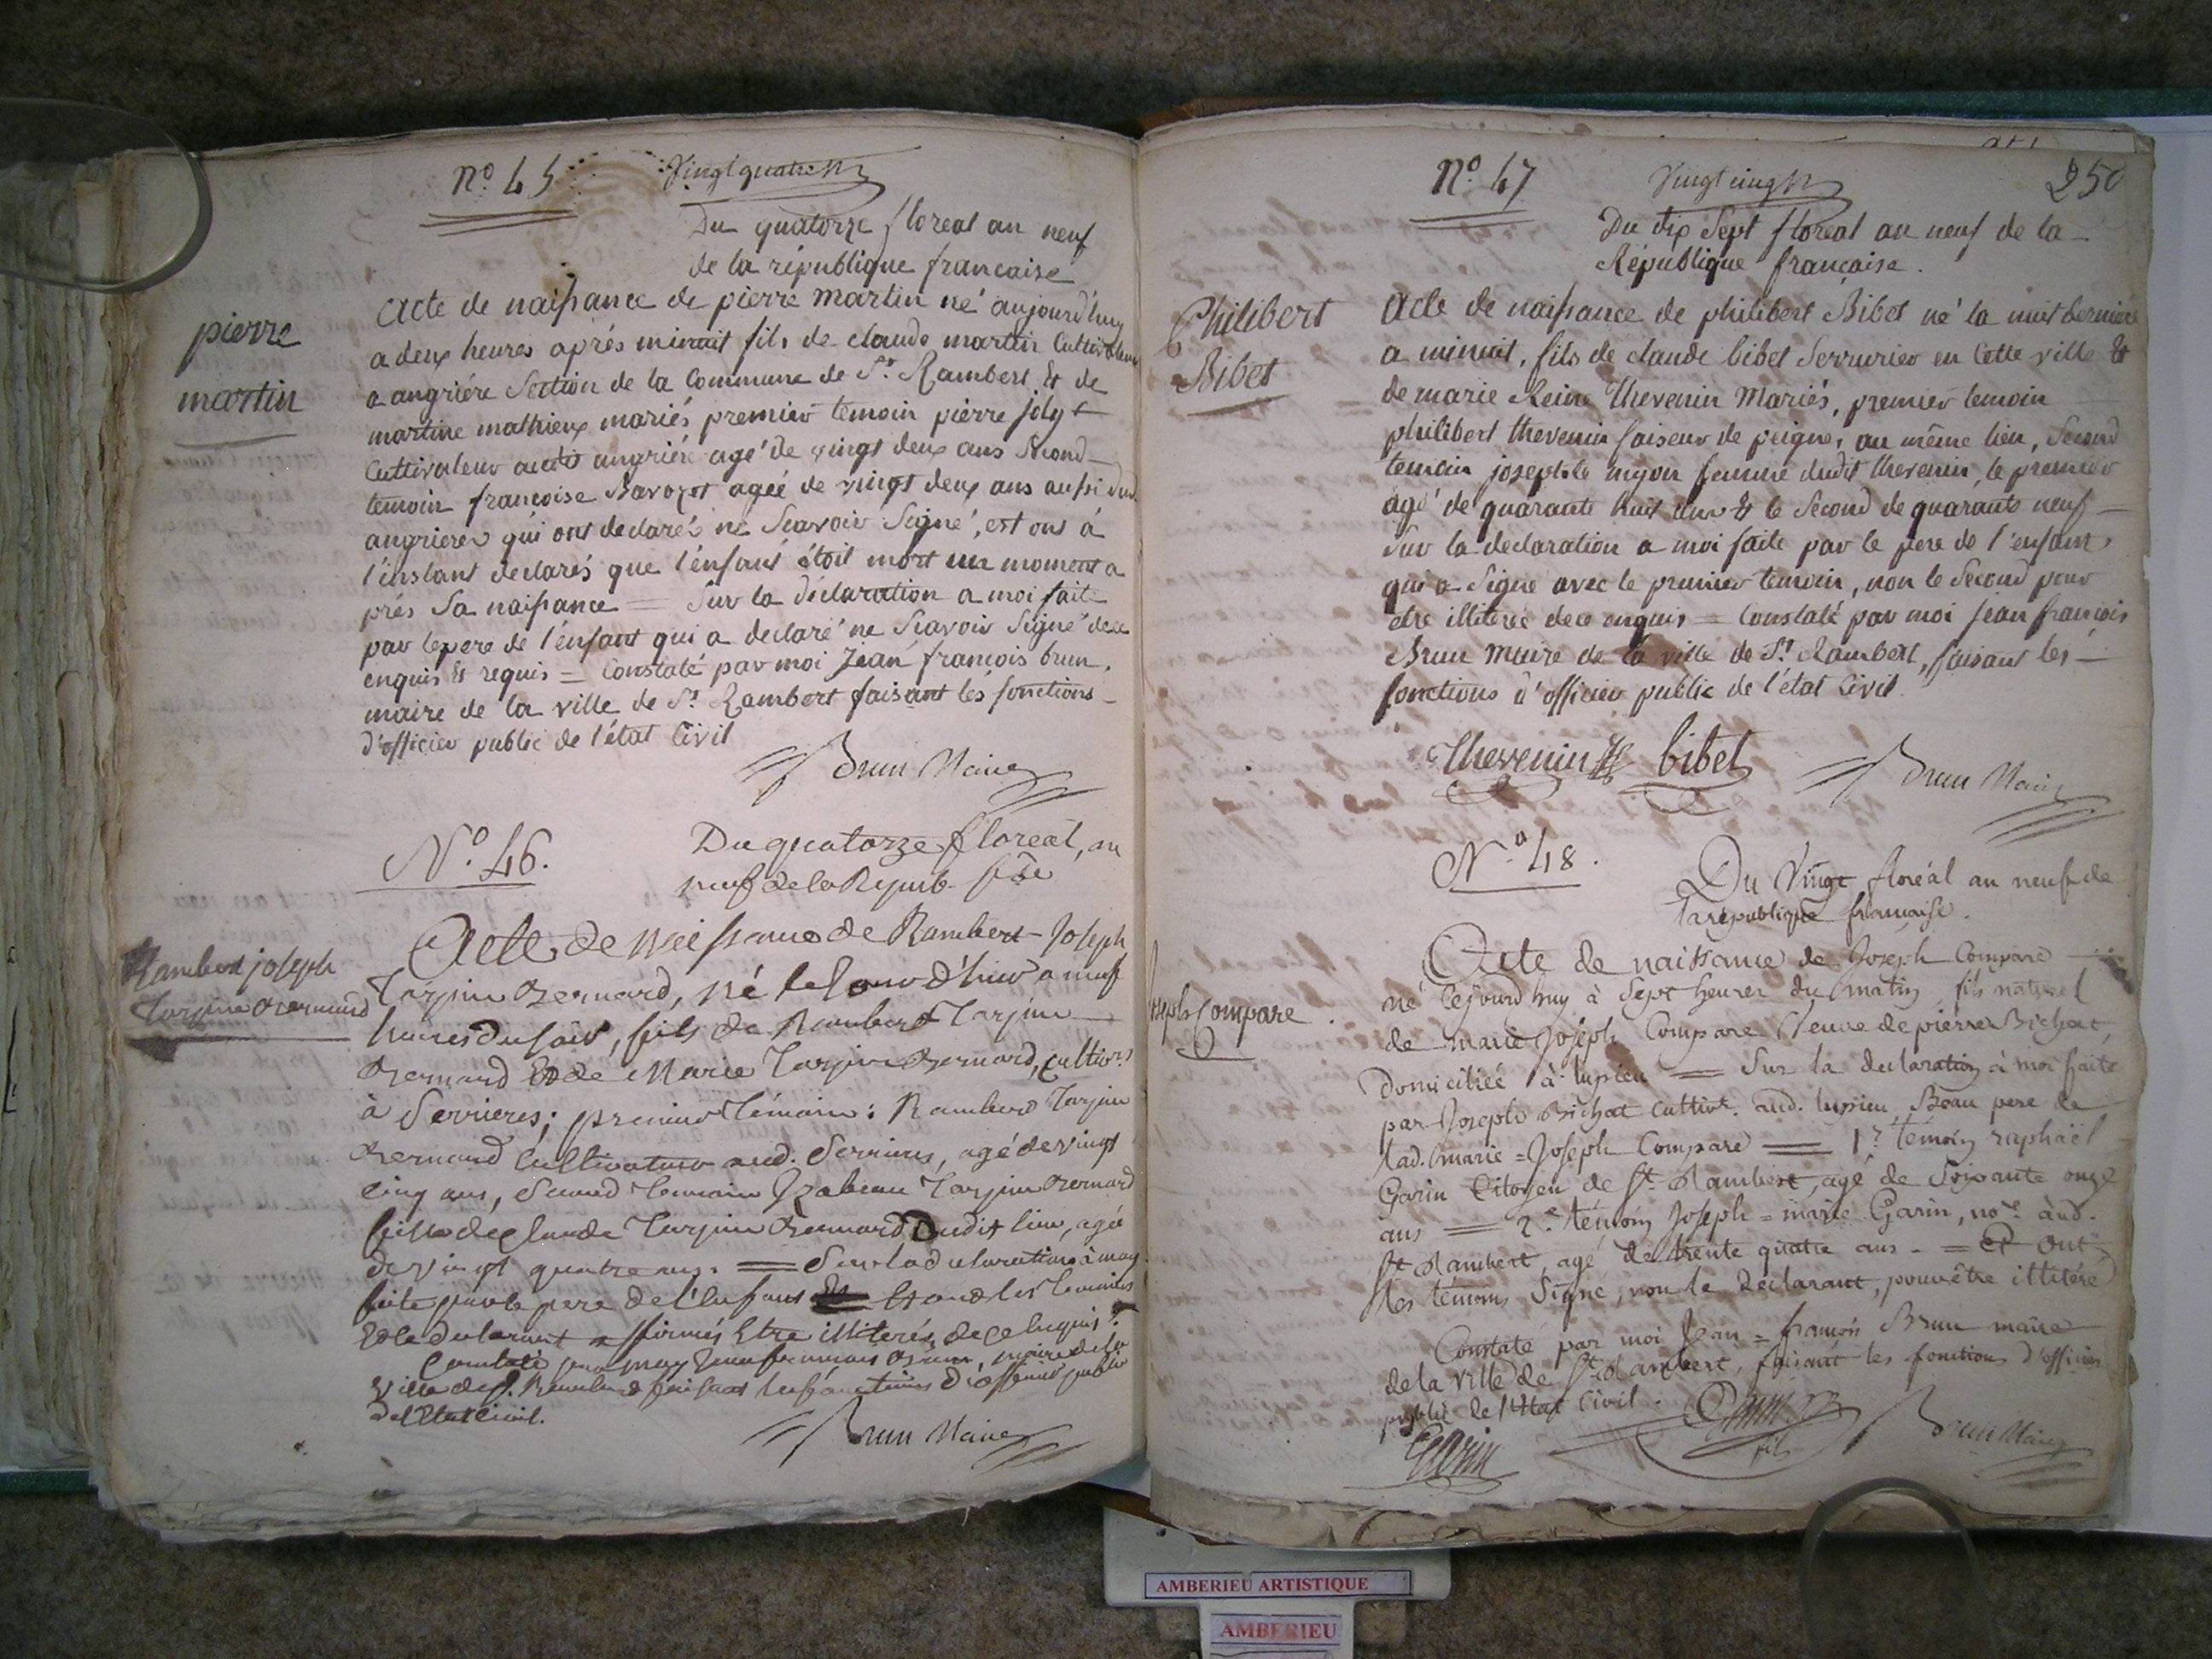 N.o 45
Vingt quatre
Du quatorze floreal an neuf
de la république francaise
pierre
martin
acte de naissance de pierre martin né aujourd'huy
a deux heures aprés minuit fils de claude martin Cultivateur
a angriére Section de la Commune de St. Rambert & de
martine mathieux mariés premier temoin pierre joly
Cultivateur audit angriére agé de vingt deux ans Second
temoin francoise Bavozet ageé de vingt deux ans aussi dud.
angrierer qui ont declarés ne Scavoir Signé, est ont á
l'instant declarés que l'énfant étoit mort un moment a
prés Sa naissance = Sur la déclaration a moi faite
par lepere de l'énfant qui a declaré ne Scavoir Signé dece
enquis & requis = Constaté par moi Jean francois brun,
maire de la ville de St. Rambert faisant les fonctions
d'officier public de l'état Civil
Brun Maire
N.o 46.
Du quatorze floreal, an
neuf de la Repub. fse
Rambert joseph
Tarjine Bernard
Acte de Naissance de Rambert Joseph
Tarjine Bernard, né le Jour d'hier a neuf
heures du soir, fils de Rambert Tarjine
Bernard Et de Marie Tarjine Bernard, Cultivrs
à Serrieres; premier Témoin: Rambert Tarjine
Bernard Cultivateur aud. Serrieres, agé de vingt
cinq ans, Second Temoin Izabeau Tarjine Bernard
fille de Claude Tarjine Bernard Dudit lieu, agée
de vingt quatre ans. = Sur la declaration à moy
faite par le pere de l'Enfant Et ont les Temoins
Et le declarant affirmés Etre illiterés, de ce Enquis.
Constaté par moy Jean francois Brun, maire de la
Ville de St. Rambert faisant les fonctions D'officier public
de l'Etat Civil.
Brun Maire
N.o 47
Vingt cinq
250
Du dix Sept floreal an neuf de la
République francaise.
Philibert
Bibet
acte de naissance de philibert Bibet né la nuit derniere
a minuit, fils de claude bibet Serrurier en Cette ville &
de marie Reine thevenin Mariés, premier temoin
philibert thevenin faiseur de peigne, au même lieu, Second
temoin josephte ingon femme dudit thevenin, le premier
agé de quarante huit ans & le Second de quarante neuf
Sur la declaration a moi faite par le pere de l'enfant
qui a Signé avec le premier temoin, non le Second pour
etre illiteré dece enquis = Constaté par moi jean francois
Brun Maire de la ville de St. Rambert, faisant les
fonctions d'officier public de l'état Civil
Thevenin bibet
Brun Maire
N.o 48.
Du Vingt floréal an neuf de
la republique francaise.
Joseph Compare
Acte de naissance de Joseph Compare
né cejourd'huy à Sept heures du matin, fils naturel
de marie Joseph Compare Veuve de pierre Bichat,
Domiciliée à lupieu = Sur la declaration à moi faite
par Joseph Bichat Cultivr. aud. lupieu Beau pere de
lad. marie = Joseph Compare = 1.er témoin raphaël
Garin Citoyen de St. Rambert, agé de Soixante onze
ans = 2.e témoin Joseph = marie Garin, nore. àud.
St. Rambert, agé de trente quatre ans. = Et ont
les témoins Signé, non le Déclarant, pour être illitéré
Constaté par moi Jean = francois Brun maire
de la Ville de St. Rambert, faisant les fonctions d'officier
public de l'Etat Civil.
Garin
Garin
fils
Brun Maire
AMBERIEU ARTISTIQUE
AMBERIEU